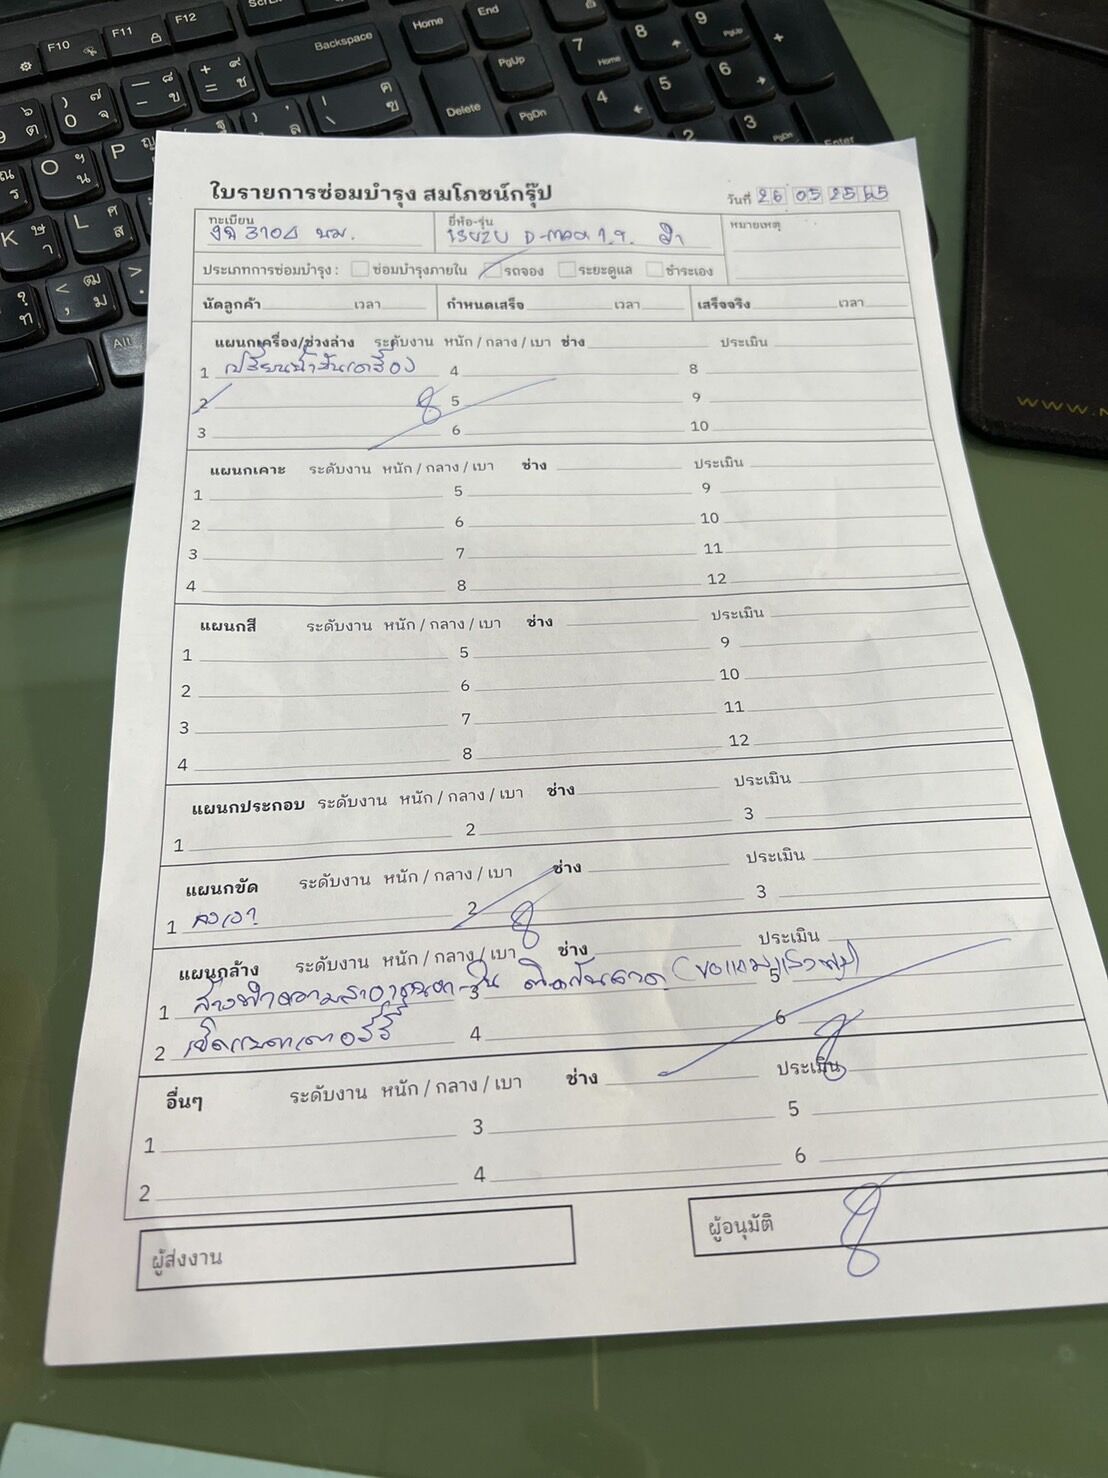 ใบรายการซ่อมบำรุง สมโภชน์กรุ๊ป
วันที่ 26 05 2565
ทะเบียน ยี่ห้อ-รุ่น หมายเหตุ
3104 นม. ISUZU D-max 1.9. ฟ้า
ประเภทการซ่อมบำรุง : ซ่อมบำรุงภายใน รถจอง ระยะดูแล ชำระเอง
นัดลูกค้า เวลา กำหนดเสร็จ เวลา เสร็จจริง เวลา
แผนกเครื่อง/ช่วงล่าง ระดับงาน หนัก / กลาง / เบา ช่าง ประเมิน
1 เปลี่ยนน้ำมันเครื่อง 4 8
2 5 9
3 6 10
แผนกเคาะ ระดับงาน หนัก / กลาง / เบา ช่าง ประเมิน
1 5 9
2 6 10
3 7 11
4 8 12
แผนกสี ระดับงาน หนัก / กลาง / เบา ช่าง ประเมิน
1 5 9
2 6 10
3 7 11
4 8 12
แผนกประกอบ ระดับงาน หนัก / กลาง / เบา ช่าง ประเมิน
1 2 3
แผนกขัด ระดับงาน หนัก / กลาง / เบา ช่าง ประเมิน
1 ลงเงา 2 3
แผนกล้าง ระดับงาน หนัก / กลาง / เบา ช่าง ประเมิน
1 ล้างทำความสะอาดนอก-ใน 3 5
2 เช็คแบตเตอรี่ 4 6
อื่นๆ ระดับงาน หนัก / กลาง / เบา ช่าง ประเมิน
1 3 5
2 4 6
ผู้ส่งงาน ผู้อนุมัติ
F10 F11 F12
Backspace Home End
PgUp
Delete PgDn
7 Home 8 9 PgUp +
4 5 6
2 3 PgDn Enter
O P
K L
Alt
WWW.